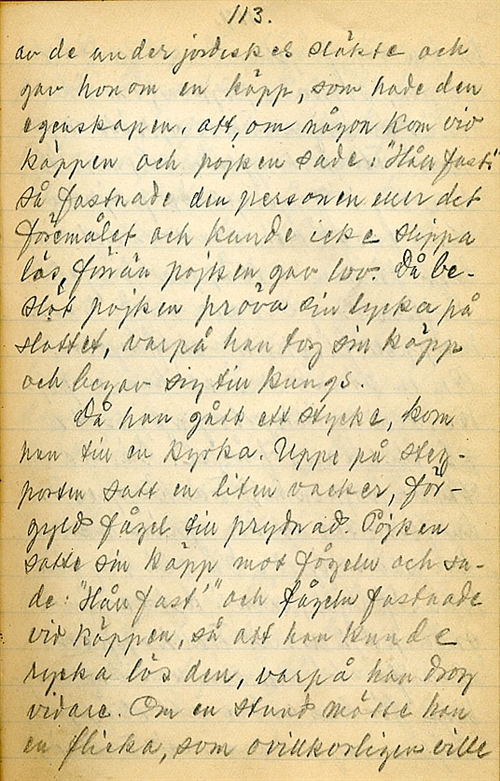 113.
av de underjordiskes släkte och
gav honom en käpp, som hade den
egenskapen, att, om någon kom vid
käppen och pojken sade: "Håll fast!"
så fastnade den personen eller det
föremålet och kunde icke slippa
lös, förrän pojken gav lov. Då be-
slöt pojken pröva sin lycka på
slottet, varpå han tog sin käpp
och begav sig till kungs.
Då han gått ett stycke, kom
han till en kyrka. Uppe på steg-
porten satt en liten vacker, för-
gylld fågel till prydnad. Pojken
satte sin käpp mot fågeln och sa-
de: "Håll fast!" och fågeln fastnade
vid käppen, så att han kunde
rycka lös den, varpå han drog
vidare. Om en stund mötte han
en flicka, som ovillkorligen ville